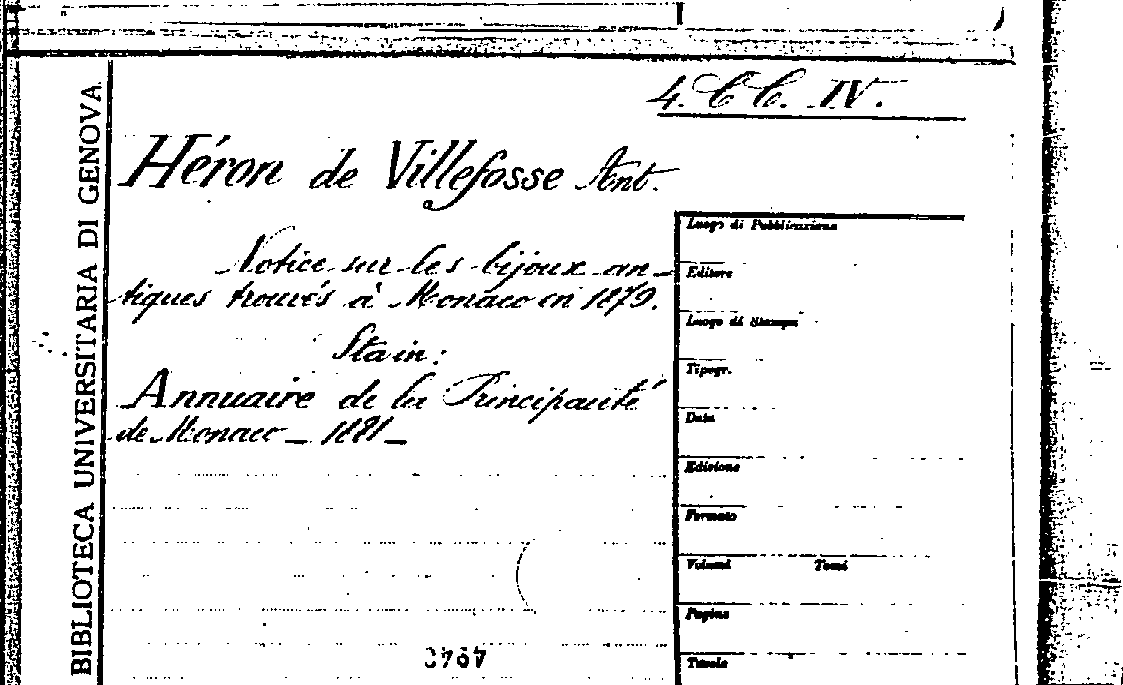 4. C C. IV.
Héron de Villefosse Ant.
Notice sur les bijoux an-
tiques trouvés à Monaco en 1879.
Sta in:
Annuaire de la Principauté
de Monaco _ 1881 _
BIBLIOTECA UNIVERSITARIA DI GENOVA
Luogo di Pubblicazione
Editore
Luogo di Stampa
Tipogr.
Data
Edizione
Formato
Volumi Tomi
Pagine
Tavole